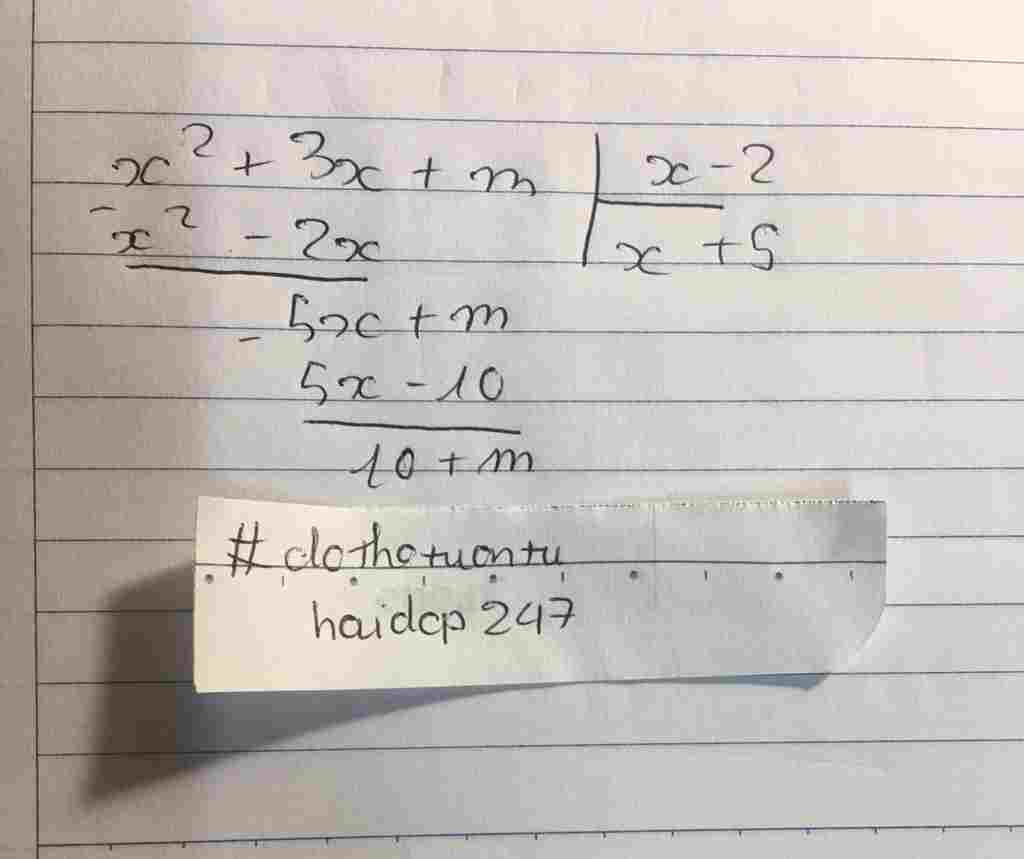 x² + 3x + m | x - 2
- x² - 2x | x + 5
- 5x + m
5x - 10
10 + m
# dothotuontu
haidcp 247